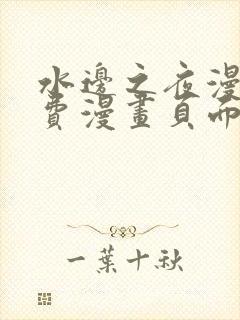 水邊之夜漫
費漫畫頁面
一葉十秋